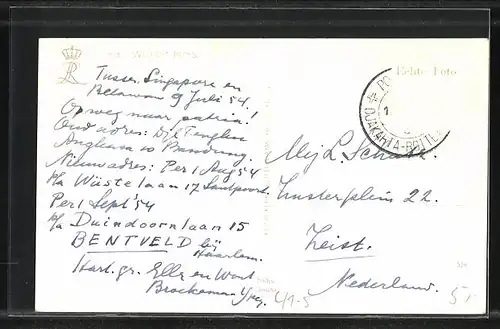 Tussen Singapore en
Bellawan 9 Juli 54.
Op weg naar patria!
Oud adres: Dj. Tengku
Angkasa 10 Bandung.
Nieuw adres: Per 1 Aug 54
p/a Wüstelaan 17 Santpoort.
Per 1 Sept '54
p/a Duindoornlaan 15
BENTVELD bij
Haarlem.
Hart. gr. Elly en Wout
Echte Foto
DJAKARTA
Mej. L.
22.
Zeist.
Nederland.
4/1-5
5,-